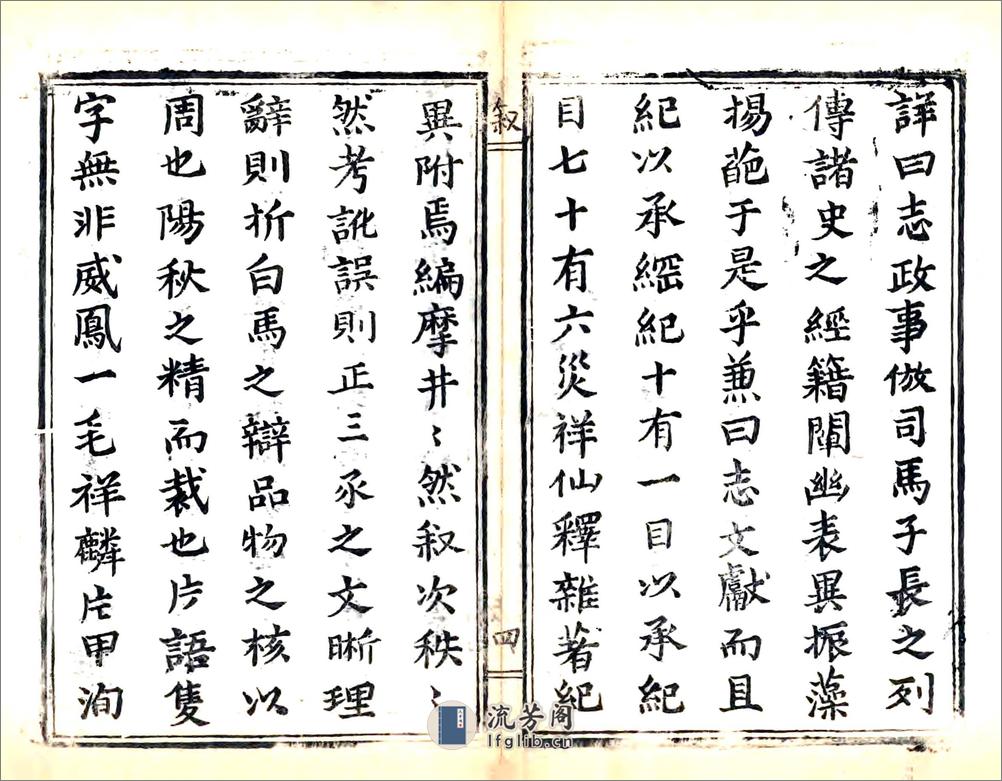 詳曰志政事倣司馬子長之列
傳諸史之經籍闡幽表異振藻
揚葩于是乎兼曰志文獻而且
紀以承綱紀十有一目以承紀
目七十有六災祥仙釋雜著紀
叙
四
異附焉編摩井〻然叙次秩〻
然考訛誤則正三豕之文晰理
辭則折白馬之辯品物之核以
周也陽秋之精而裁也片語隻
字無非威鳳一毛祥麟片甲洵
流芳阁
lfglib.cn